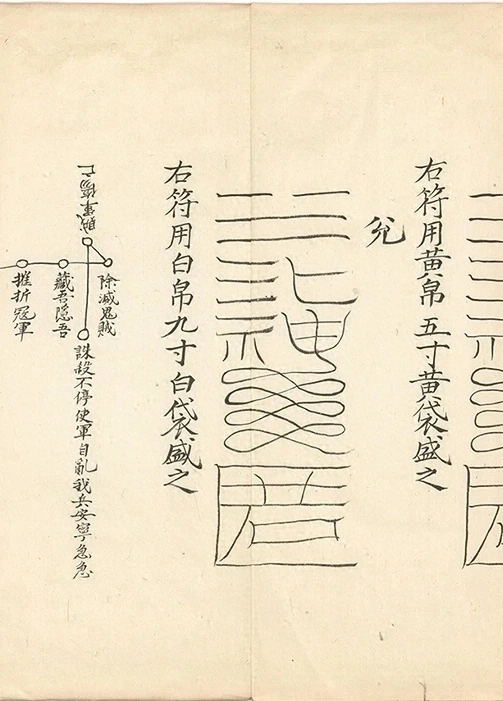 右符用黄帛五寸黄袋盛之
兊
右符用白帛九寸白袋盛之
除滅鬼賊
誅殺不停使軍自亂我兵安寧急急
藏吾隱吾
摧折冦軍